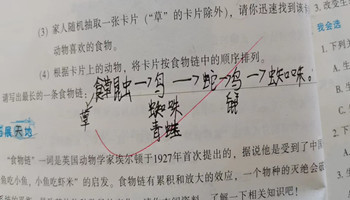 (3) 家人随机抽取一张卡片(“草”的卡片除外),请你迅速找到该
动物喜欢的食物。
(4) 根据卡片上的动物,将卡片按食物链中的顺序排列。
请写出最长的一条食物链:
草 食草昆虫→鸟→蛇→鸟→蜘蛛。
蜘蛛
青蛙
天地
“食物链”一词是英国动物学家埃尔顿于1927年首次提出的,据说他是受到了中国
鱼吃小鱼,小鱼吃虾米”的启发。食物链有累积和放大的效应,一个物种的灭绝会
了解一下相关知识吧!
3. 改变生
我会选
1. 下列
A. 生
B. 生
2. 下列
A.